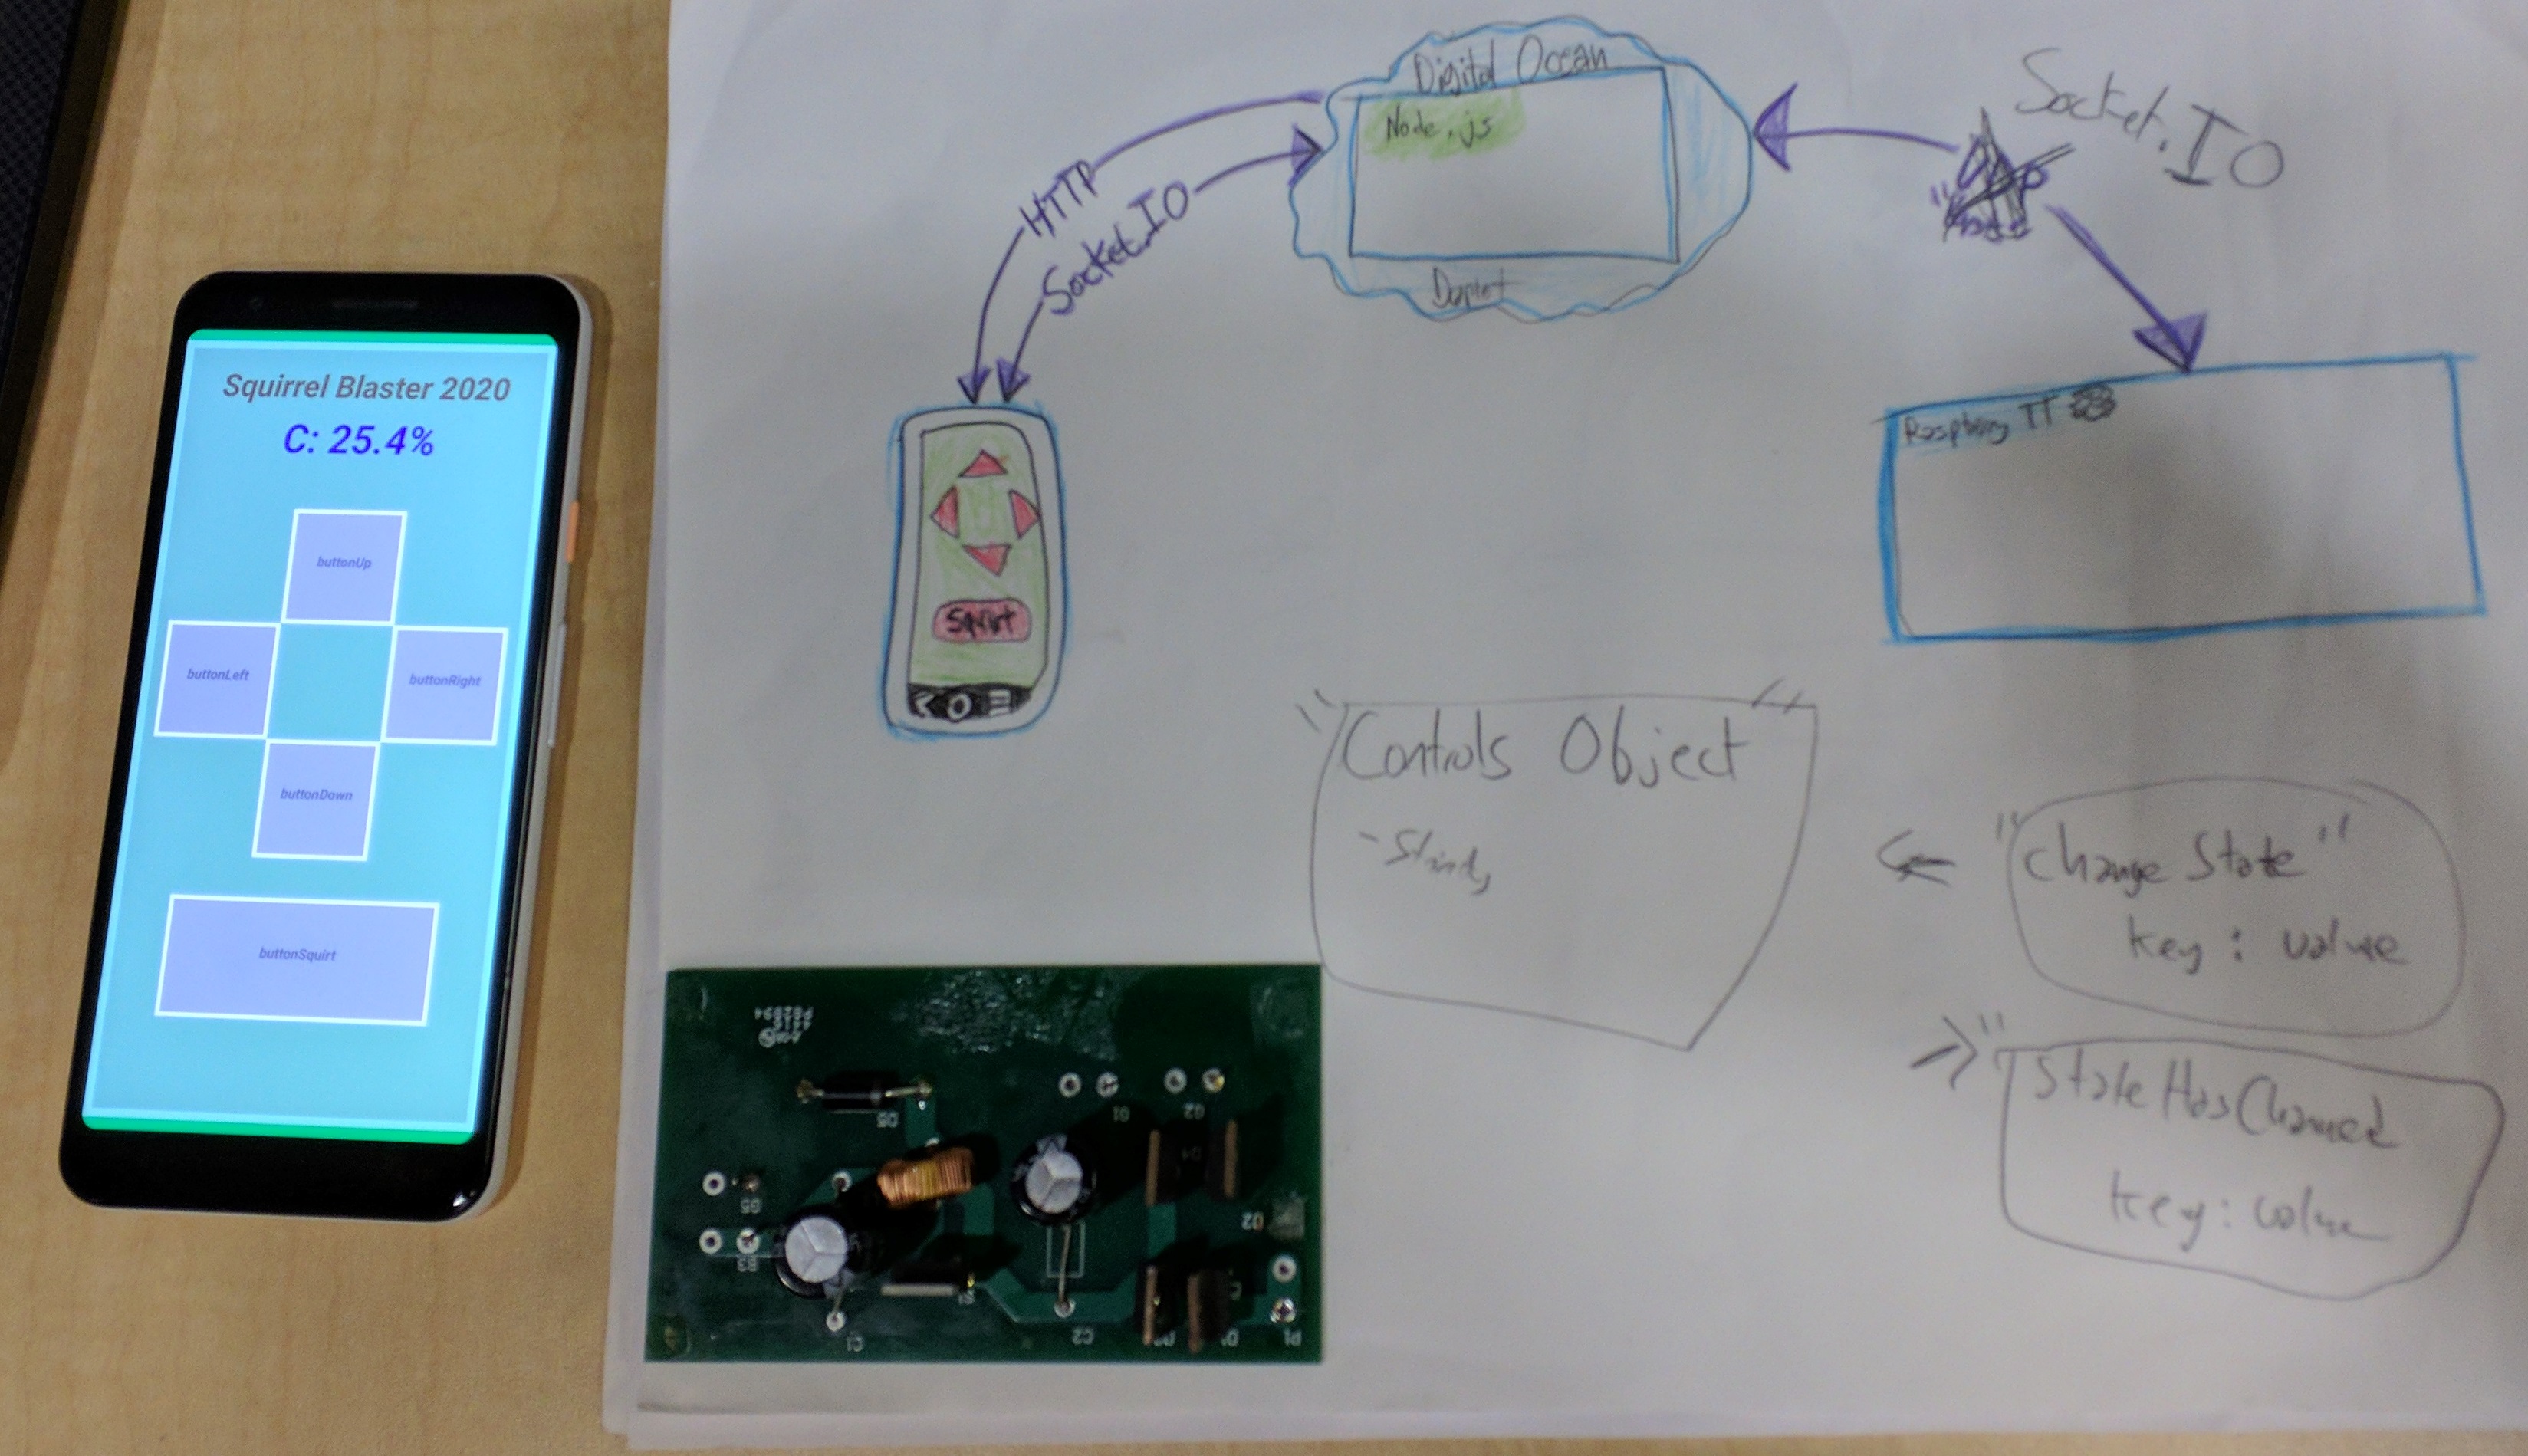 Squirrel Blaster 2020
C: 25.4%
buttonUp
buttonLeft
buttonRight
buttonDown
buttonSquirt
Digital Ocean
Node.js
HTTP
Socket.IO
Socket.IO
Squirt
Controls Object
"Change State"
key : value
"State Has Changed
key : value
C1
C2
D2
P1